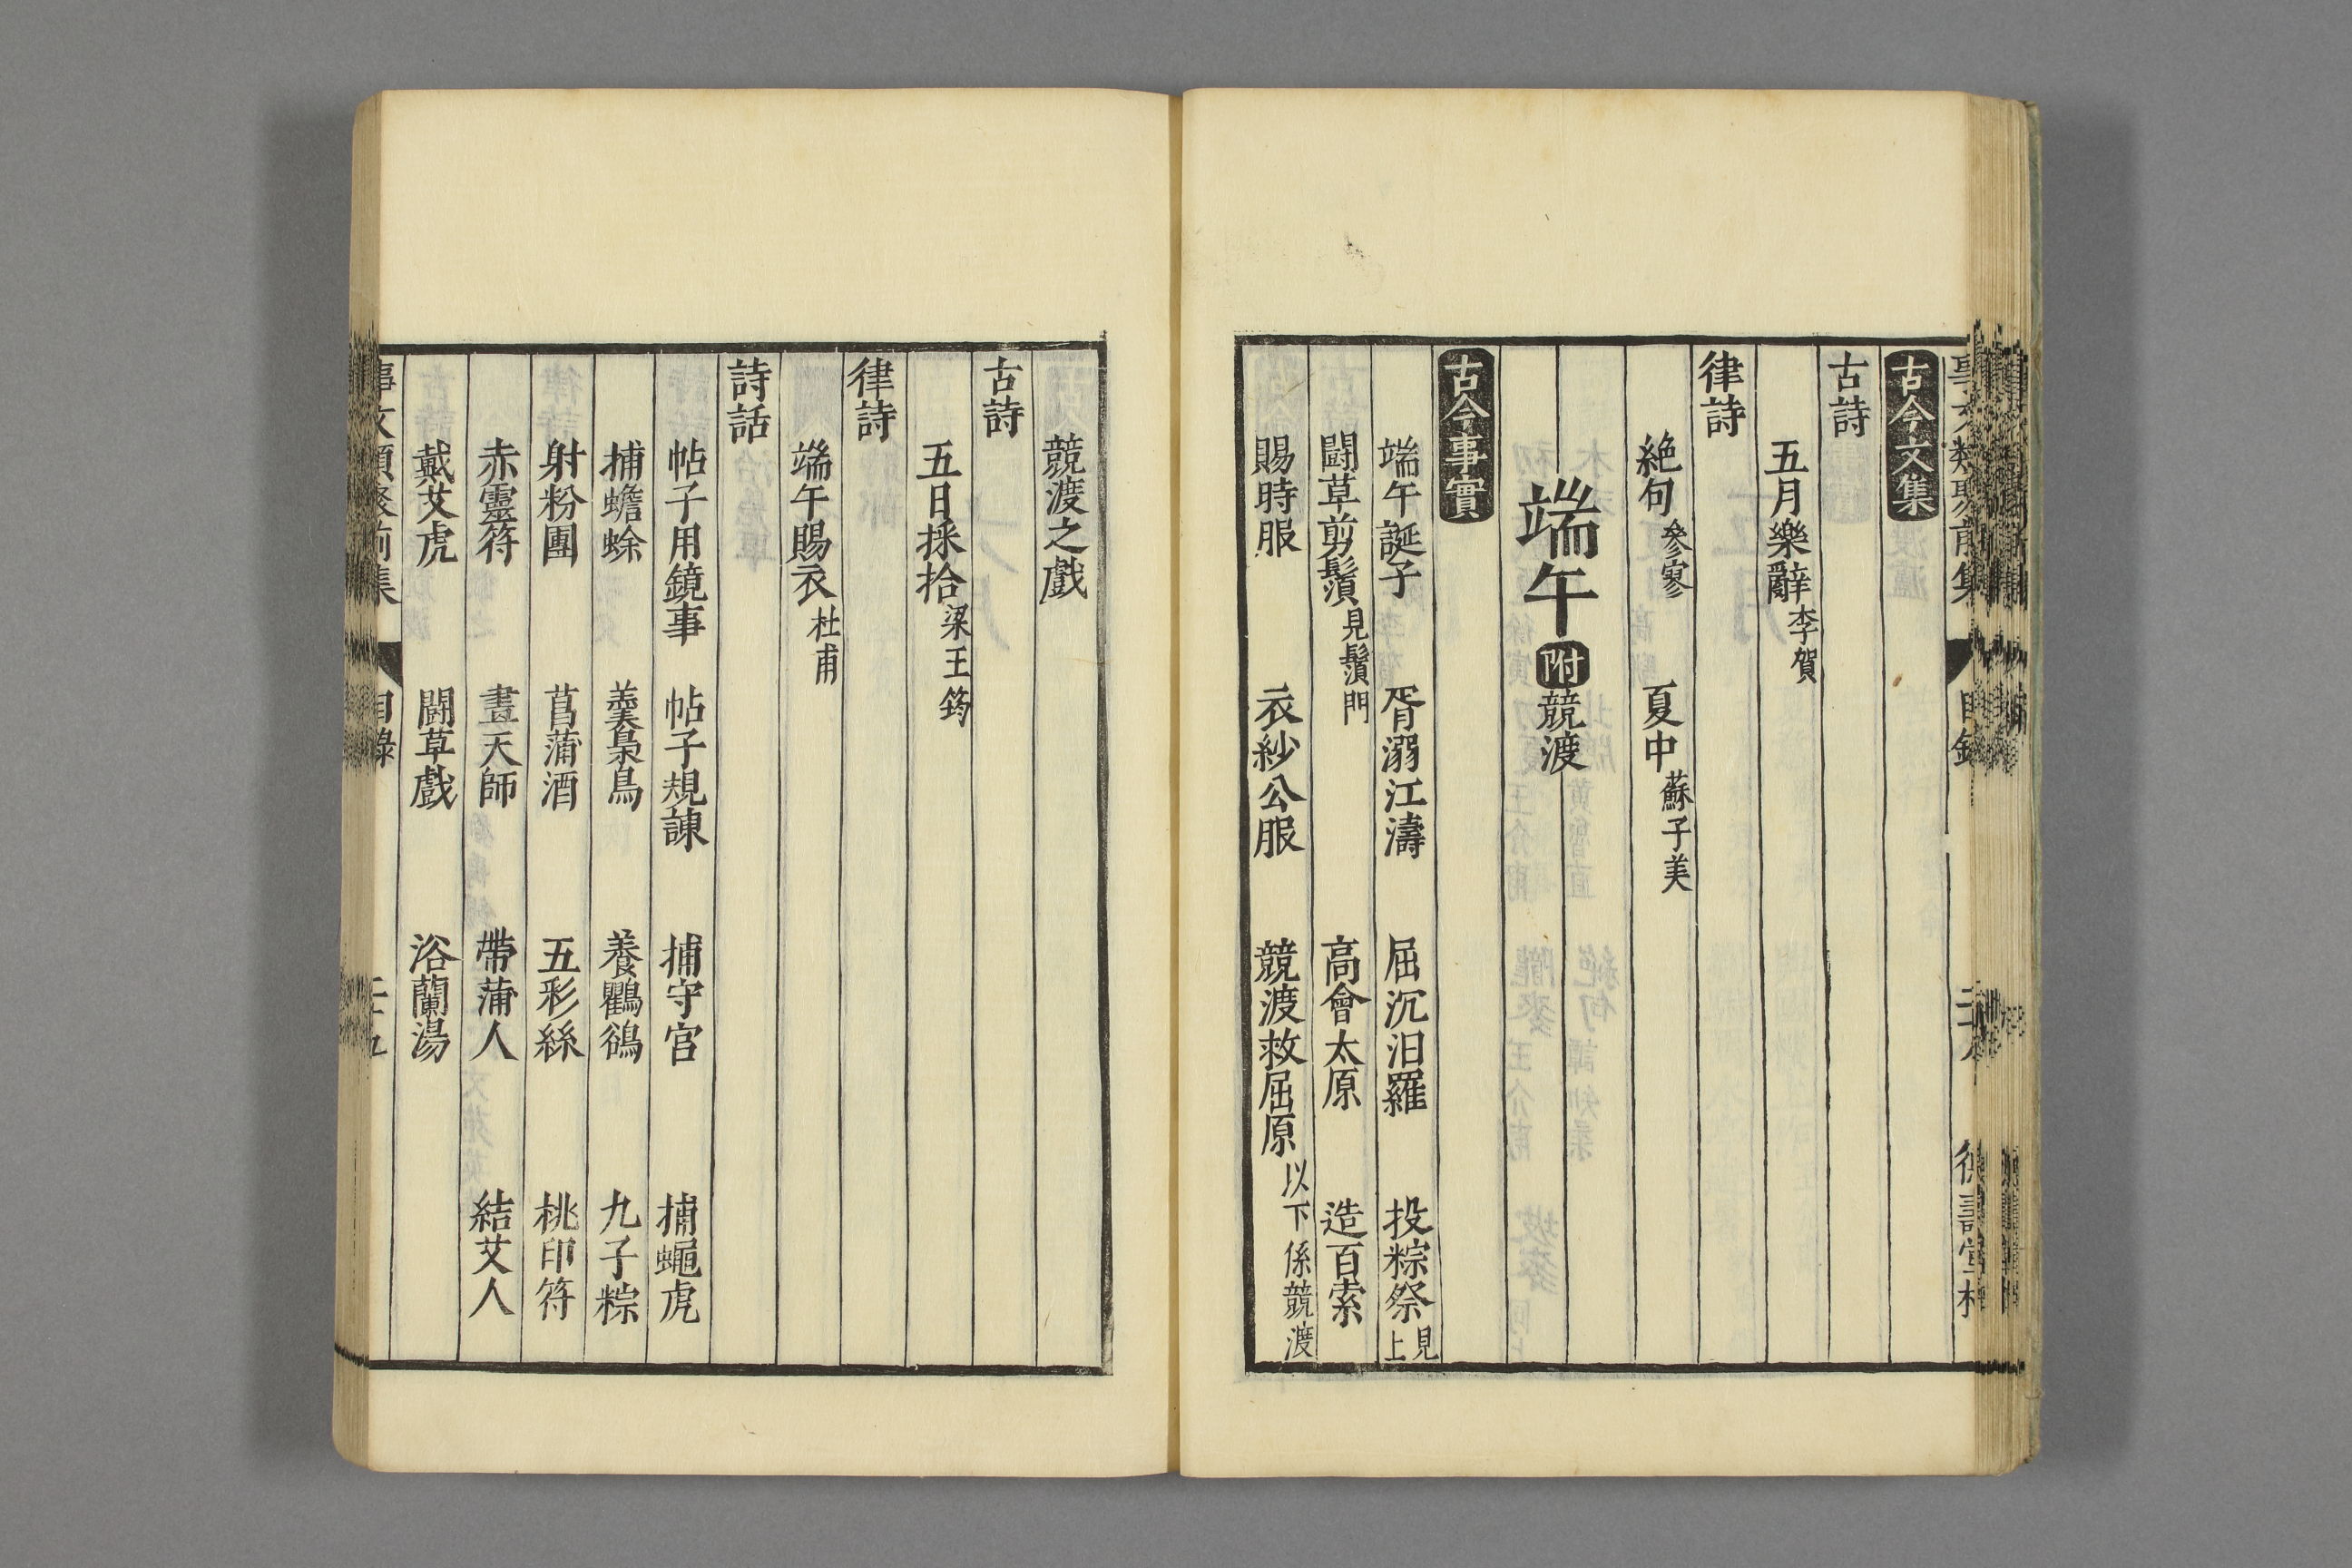 古今文集
古詩
五月樂辭 李賀
律詩
絶句 參寥 夏中 蘇子美
端午 附 競渡
古今事實
端午誕子 胥溺江濤 屈沉汨羅 投粽祭 見上
鬪草剪鬚 見鬚門 高會太原 造百索
賜時服 衣紗公服 競渡救屈原 以下係競渡
競渡之戲
古詩
五日採拾 梁王筠
律詩
端午賜衣 杜甫
詩話
帖子用鏡事 帖子規諫 捕守宮 捕蠅虎
捕蟾蜍 羹梟鳥 養鸜鵒 九子粽
射粉團 菖蒲酒 五彩絲 桃印符
赤靈符 畫天師 帶蒲人 結艾人
戴艾虎 鬪草戲 浴蘭湯